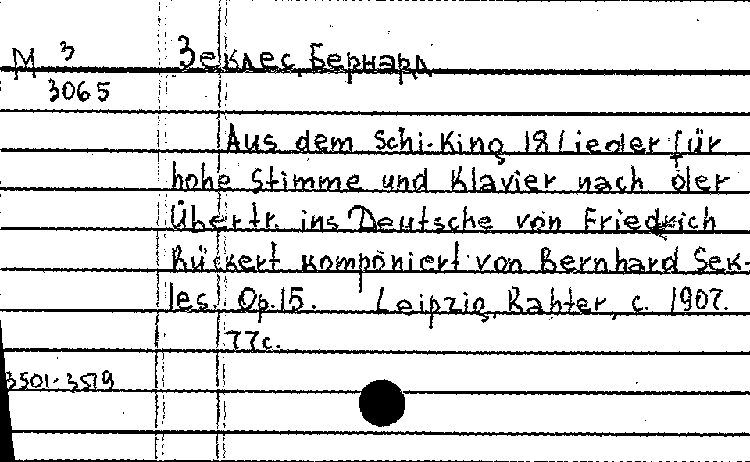 М 3 Зеклес, Бернард
3065
Aus dem Schi-King 18 Lieder für
hohe Stimme und Klavier nach der
Übertr. ins Deutsche von Friedrich
Rückert komponiert von Bernhard Sek-
les. Op. 15. Leipzig, Rahter, c. 1907.
77c.
3501-3579